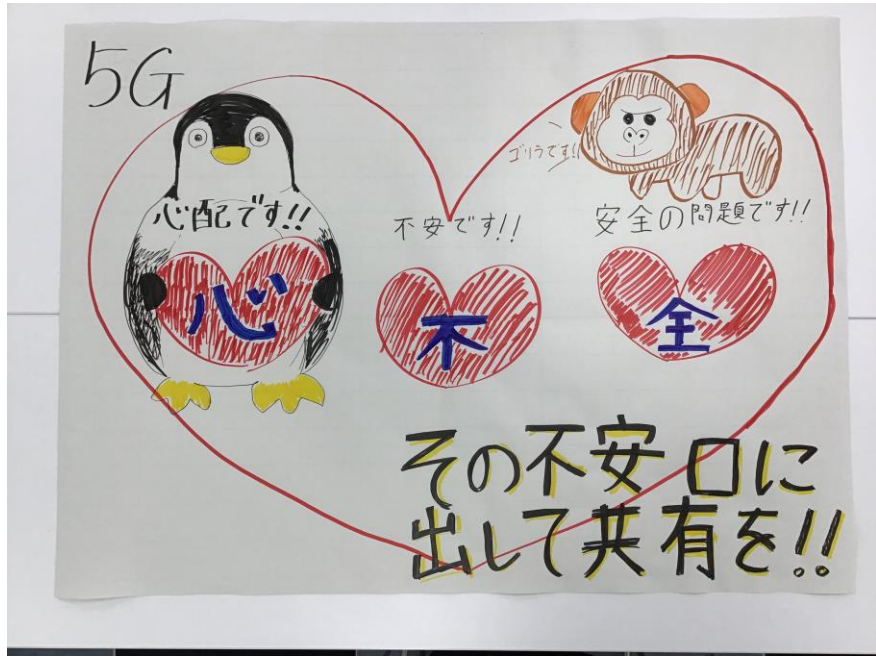 5G
ゴリラです!!
心配です!!
不安です!!
安全の問題です!!
心
不
全
その不安口に
出して共有を!!